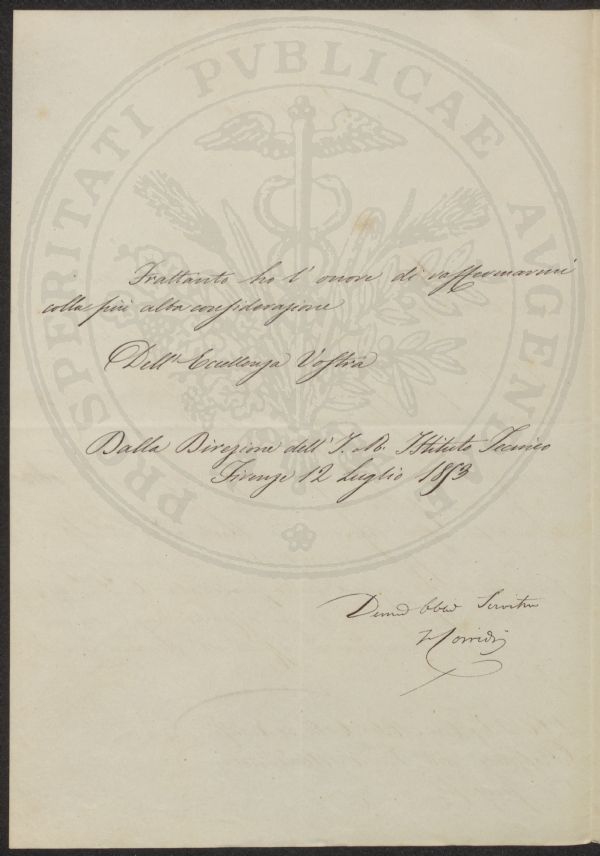 PROSPERITATI PVBLICAE AVGENDAE
Frattanto ho l'onore di raffermarmi
colla più alta considerazione
Dell'Eccellenza Vostra
Dalla Direzione dell'I. e R. Istituto Tecnico
Firenze 12 Luglio 1853
Devmo Obbo Servitore